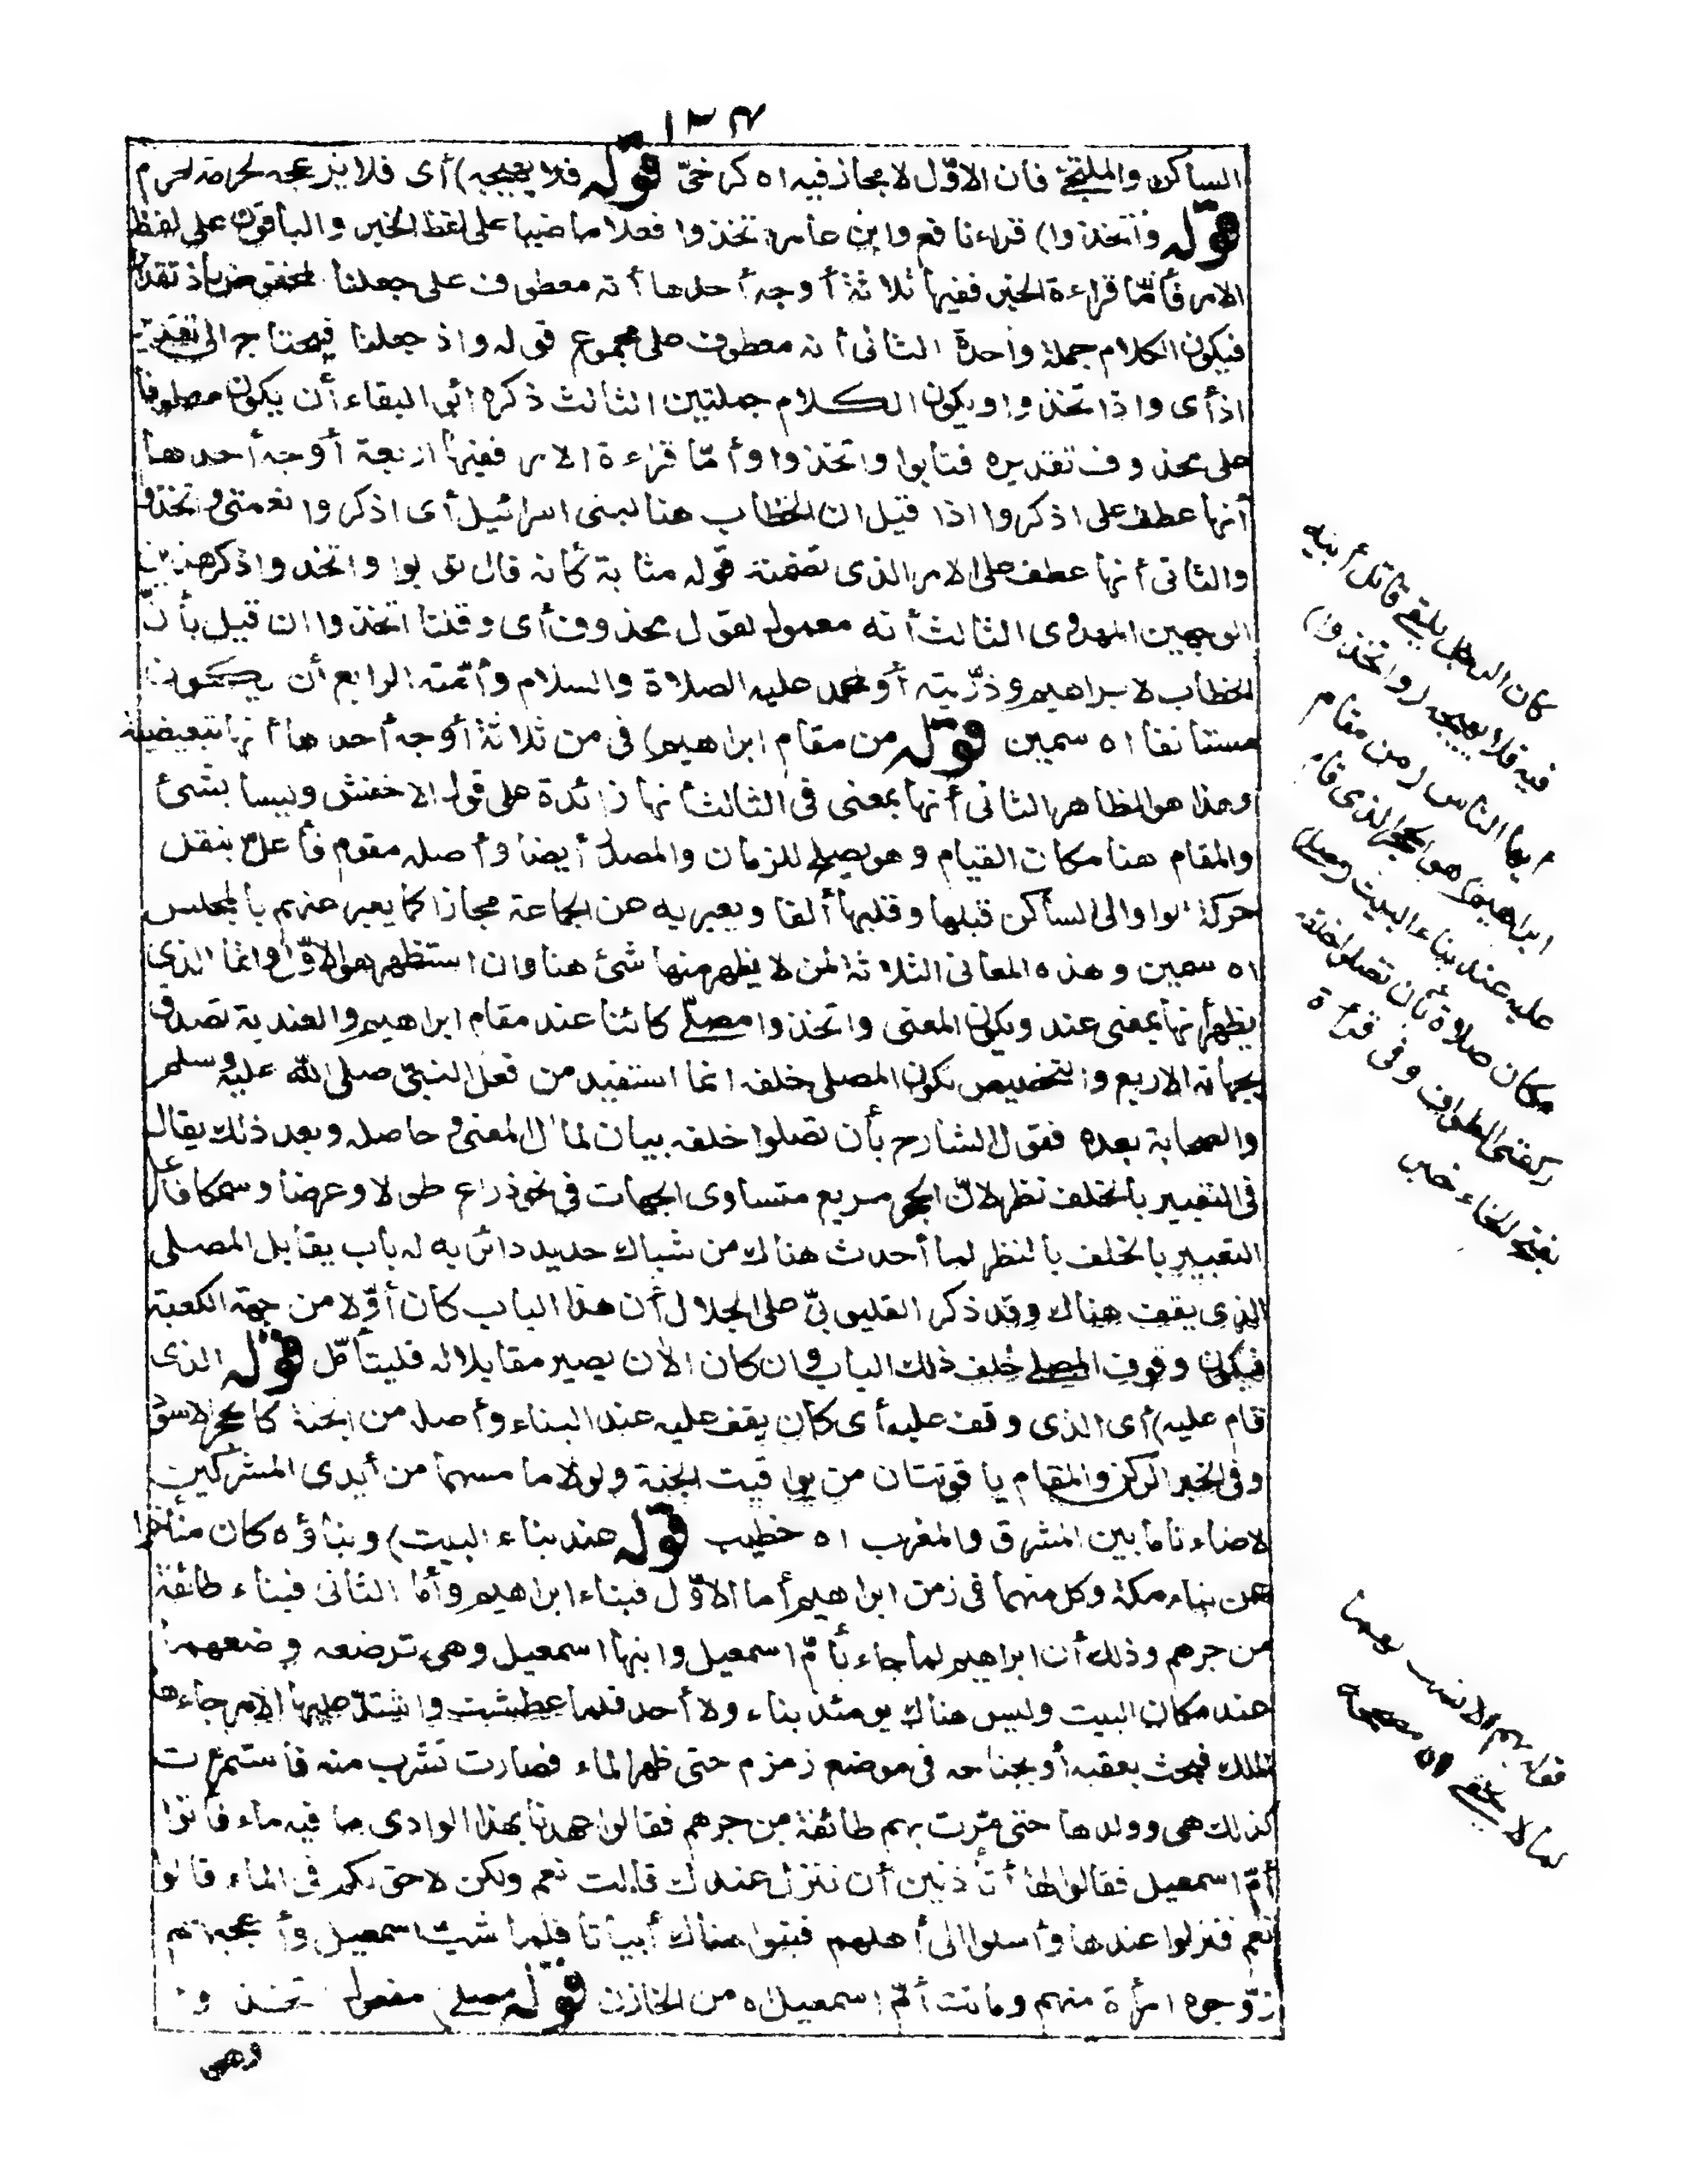 ١٣٤
الساكن والملتجئ فان الاوّل لا مجاز فيه اه كرخىّ قوله فلا يهيجه) أى فلا يزعجه لحرمة الحرم
قوله واتخذوا) قراءنافع وابن عامر واتخذوا فعلا ماضيا على لفظ الخبر والباقون على لفظ
الامر فأمّا قراءة الخبر ففيها ثلاثة أوجه أحدها أنه معطوف على جعلنا المخفوض باذ تقديرا
فيكون الكلام جملة واحدة الثانى أنه معطوف على مجموع قوله واذ جعلنا فيحتاج الى تقدير
اذ أى واذ اتخذوا ويكون الكلام جملتين الثالث ذكره أبو البقاء أن يكون معطوفا
على محذوف تقديره فثابوا واتخذوا وأمّا قراءة الامر ففيها أربعة أوجه أحدها
أنها عطف على اذكروا اذا قيل ان الخطاب هنا لبنى اسرائيل أى اذكروا نعمتى واتخذوا
والثانى أنها عطف على الامر الذى تضمنه قوله مثابة كأنه قال ثوبوا واتخذوا ذكر هذين
الوجهين المهدوى الثالث أنه معمول لقول محذوف أى وقلنا اتخذوا ان قيل بأنّ
الخطاب لابراهيم وذرّيته أو لمحمد عليه الصلاة والسلام وأمّته الرابع أن يكون
مستأنفا اه سمين قوله من مقام ابراهيم) فى من ثلاثة أوجه أحدها أنها تبعيضية
وهذا هو الظاهر الثانى أنها بمعنى فى الثالث أنها زائدة على قول الاخفش وليسا بشئ
والمقام هنا مكان القيام وهو يصلح للزمان والمصدر أيضا وأصله مقوم فأعلّ بنقل
حركة الواو الى الساكن قبلها وقلبها ألفا ويعبر به عن الجماعة مجازا كما يعبر عنهم بالمجلس
اه سمين وهذه المعانى الثلاثة لمن لا يظهر منها شئ هنا وان استظهر هو الاوّل وانما الذى
يظهر أنها بمعنى عند ويكون المعنى واتخذوا مصلّى كائنا عند مقام ابراهيم والعندية تصدق
بجهاته الاربع والتخصيص بكون المصلى خلفه انما استفيد من فعل النبىّ صلى الله عليه وسلم
والصحابة بعده فقول الشارح بأن تصلوا خلفه بيان لمآل المعنى وحاصله وبعد ذلك يقال
فى التعبير بالخلف نظر لانّ الحجر مربع متساوى الجهات فى نحو ذراع طولا وعرضا وسمكا فأعلّ
التعبير بالخلف بالنظر لما أحدث هناك من شباك حديد دائر به له باب يقابل المصلى
الذى يقف هناك وقد ذكر القليوبىّ على الجلال أن هذا الباب كان أوّلا من جهة الكعبة
فيكون وقوف المصلى خلف ذلك الباب وان كان الآن يصير مقابلا له فليتأمّل قوله الذى
قام عليه) أى الذى وقف عليه أى كان يقف عليه عند البناء وأصله من الجنة كالحجر الاسود
وفى الخبر الركن والمقام ياقوتتان من يواقيت الجنة ولولا ما مسهما من أيدى المشركين
لاضاءتا ما بين المشرق والمغرب اه خطيب قوله عند بناء البيت) وبناؤه كان متأخرا
عن بناء مكة وكل منهما فى زمن ابراهيم أما الاوّل فبناء ابراهيم وأما الثانى فبناء طائفة
من جرهم وذلك أن ابراهيم لما جاء بأمّ اسمعيل وابنها اسمعيل وهى ترضعه وضعهما
عند مكان البيت وليس هناك يومئذ بناء ولا أحد فلما عطشت واشتدّ عليها الامر جاءها
الملك فبحث بعقبه أو بجناحه فى موضع زمزم حتى ظهر الماء فصارت تشرب منه فاستمرت
كذلك هى وولدها حتى مرّت بهم طائفة من جرهم فقالوا عهدنا بهذا الوادى ما فيه ماء فأتوا
أمّ اسمعيل فقالوا لها أتأذنين أن ننزل عندك قالت نعم ولكن لا حق لكم فى الماء قالوا
نعم فنزلوا عندها وأرسلوا الى أهلهم فبنوا هناك أبياتا فلما شبّ اسمعيل وأعجبهم
زوّجوه امرأة منهم وماتت أمّ اسمعيل اه من الخازن قوله مصلى) مفعول تخذوا
وهى
كان الرجل يلقى قاتل أبيه
فيه فلا يهيجه (واتخذوا)
أيها الناس (من مقام
ابراهيم) هو الحجر الذى قام
عليه عند بناء البيت (مصلى)
مكان صلاة بأن تصلوا خلفه
ركعتى الطواف وفى قراءة
بفتح الخاء خبر